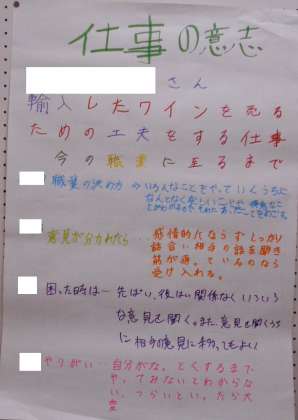 仕事の意志
さん
輸入したワインを売る
ための工夫をする仕事
今の職業に至るまで
職業の決め方 いろんなことをやっていくうちに
意見が分かれたら… 感情的にならずしっかり
話合い相手の話を聞き
筋が通っているのなら
受け入れる。
困った時は… 先ぱい、後はい関係なくいろいろ
な意見を聞く。また、意見を聞くうち
に相手の意見に
やりがい… 自分がな。とくするまで
や。てみないとわからな
い、つらいとい。たら大
変